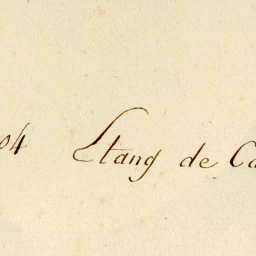 04 Etang de Ca